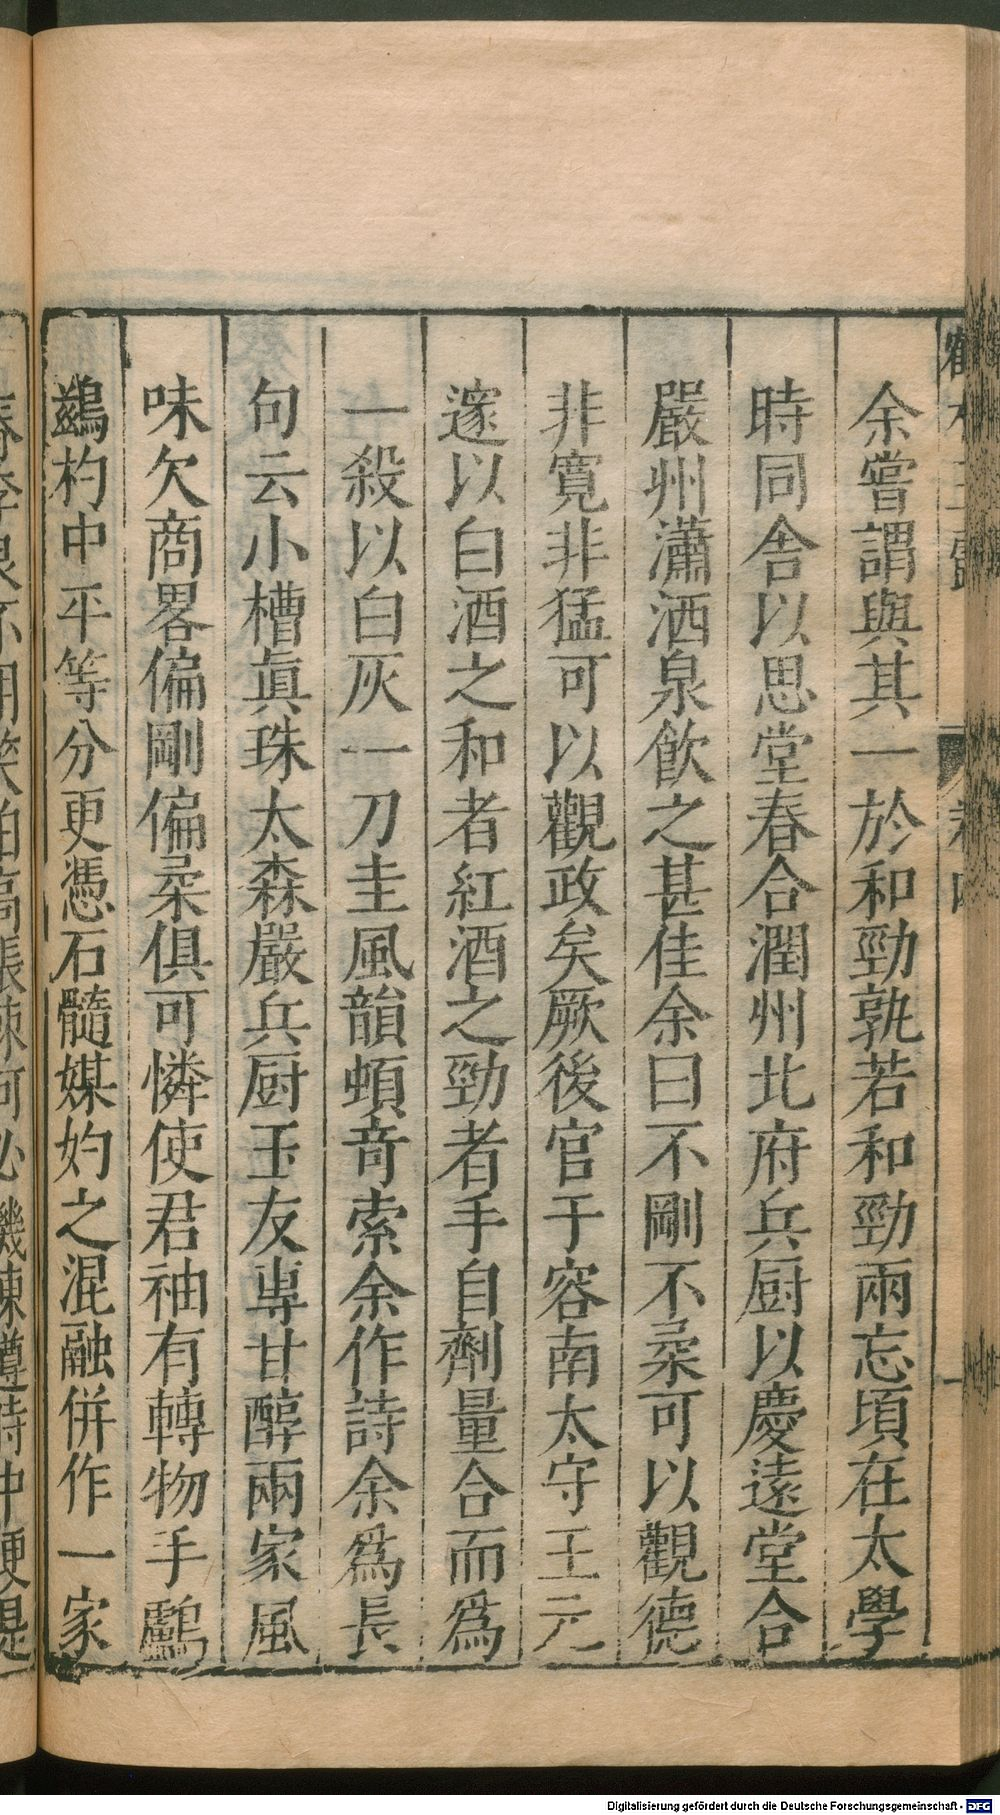 余嘗謂與其一於和勁孰若和勁兩忘頃在太學
時同舍以思堂春合潤州北府兵厨以慶遠堂合
嚴州瀟洒泉飲之甚佳余曰不剛不柔可以觀德
非寛非猛可以觀政矣厥後官于容南太守王元
邃以白酒之和者紅酒之勁者手自劑量合而爲
一殺以白灰一刀圭風韻頓竒索余作詩余爲長
句云小槽眞珠太森嚴兵厨玉友專甘醇兩家風
味欠商畧偏剛偏柔俱可憐使君袖有轉物手鸕
鷀杓中平等分更憑石髓媒妁之混融併作一家
Digitalisierung gefördert durch die Deutsche Forschungsgemeinschaft - DFG